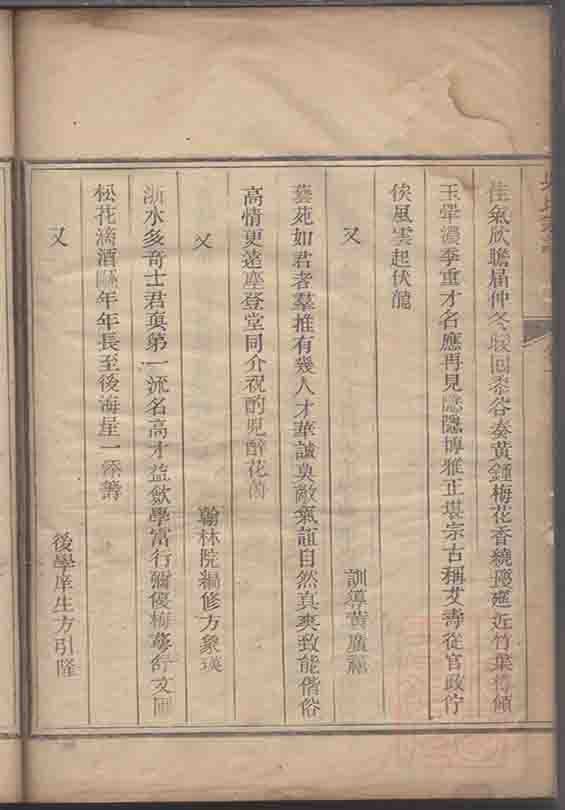 佳氣欣瞻屆仲冬暖回黍谷奏黃鍾梅花香繞瓊筵近竹葉樽傾
玉斝濃季重才名應再見隱博雅正堪宗古稱艾壽從官政佇
俟風雲起伏龍
又 訓導黃廣
藝苑如君者羣推有幾人才華誠莫敵氣誼自然真爽致能偕俗
高情更遠塵登堂同介祝酌兕醉花
又 翰林院編修方象瑛
浙水多奇士君真第一流名高才益斂學富行彌優梅萼舒文
松花滴酒年年長至後海屋一添籌
又 後學庠生方引隆